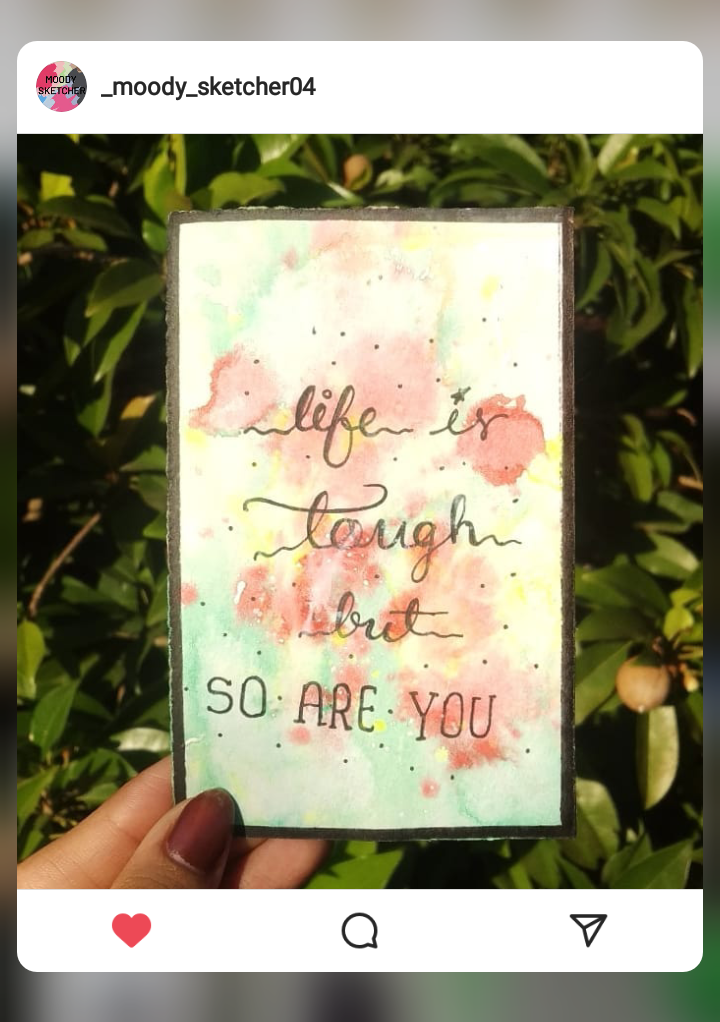 MOODY
SKETCHER
_moody_sketcher04
life is
tough
but
SO ARE YOU